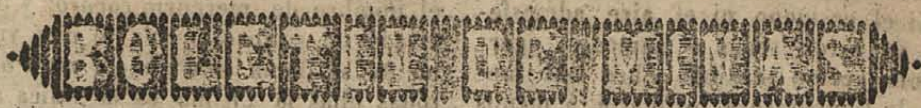 BOLETIN DE MINAS